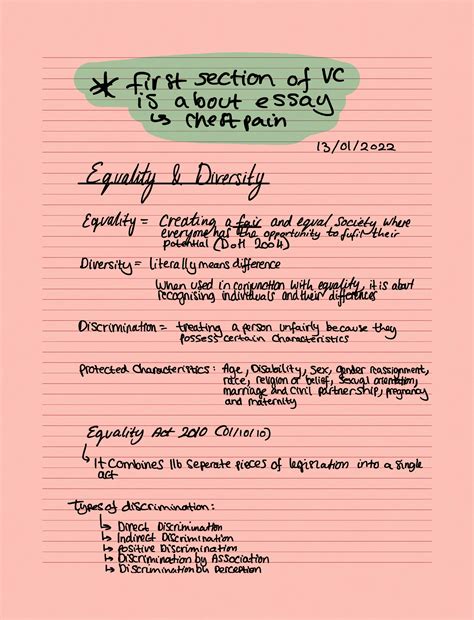 * first section of VC
is about essay
↳ Chest pain
13/01/2022
Equality & Diversity
Equality = Creating a fair and equal society where
everyone has the opportunity to fufil their
potential (DoH 2004)
Diversity = literally means difference
When used in conjunction with equality, it is about
recognising individuals and their differences
Discrimination = treating a person unfairly because they
possess certain characteristics
Protected Characteristics: Age, Disability, Sex, Gender reassignment,
race, religion or belief, Sexual orientation,
marriage and civil partnership, pregnancy
and maternity
Equality Act 2010 (01/10/10)
↳ It Combines 116 seperate pieces of legislation into a single
act
Types of discrimination:
↳ Direct Discrimination
↳ Indirect Discrimination
↳ Positive Discrimination
↳ Discrimination by Association
↳ Discrimination by Perception